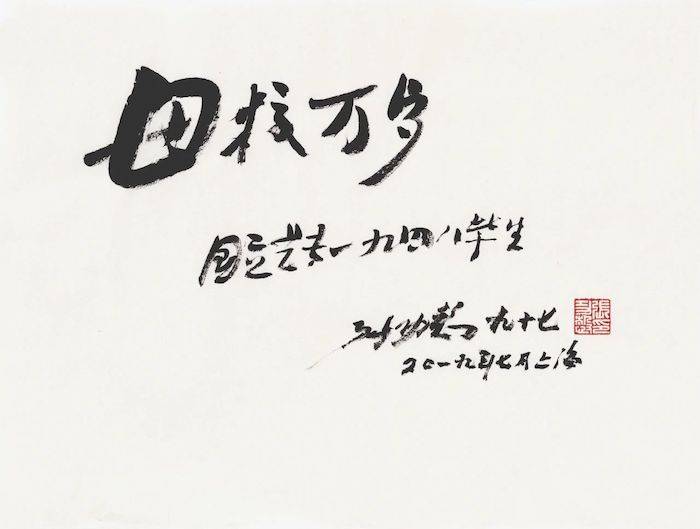 母校万岁
国立艺专一九四八毕生
张功慤 九十七
二〇一九年七月上海